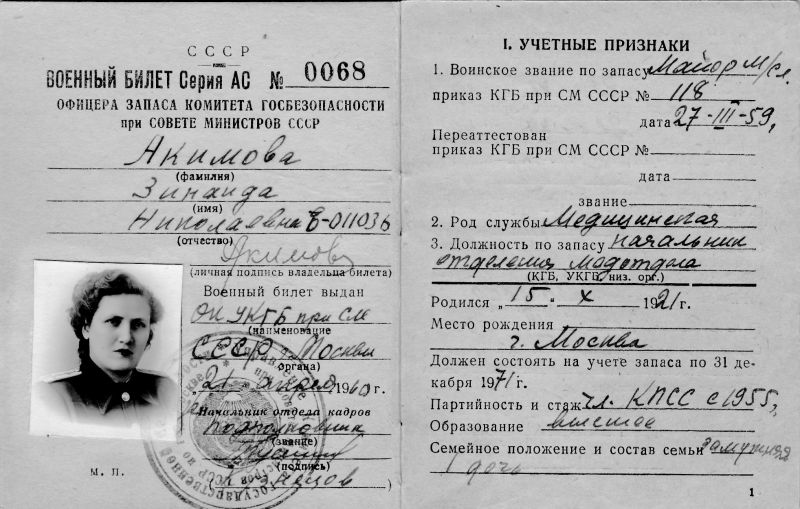 СССР
ВОЕННЫЙ БИЛЕТ Серия АС № 0068
ОФИЦЕРА ЗАПАСА КОМИТЕТА ГОСБЕЗОПАСНОСТИ
при СОВЕТЕ МИНИСТРОВ СССР
Акимова
(фамилия)
Зинаида
(имя)
Николаевна Б-011036
(отчество)
Акимова
(личная подпись владельца билета)
Военный билет выдан
ОК УКГБ при СМ
(наименование
СССР Москвы
органа)
„21" 1960 г.
Начальник отдела кадров
подполковник
(звание)
(подпись)
( )
М. П.
I. УЧЕТНЫЕ ПРИЗНАКИ
1. Воинское звание по запасу Майор м/сл.
приказ КГБ при СМ СССР № 118
дата 27-III-59,
Переаттестован
приказ КГБ при СМ СССР №
дата
звание
2. Род службы Медицинская
3. Должность по запасу начальник
отделения медотдела
(КГБ, УКГБ, низ. орг.)
Родился „15" X 1921 г.
Место рождения
г. Москва
Должен состоять на учете запаса по 31 де-
кабря 1971 г.
Партийность и стаж чл. КПСС с 1955,
Образование высшее
Семейное положение и состав семьи замужняя
дочь
1